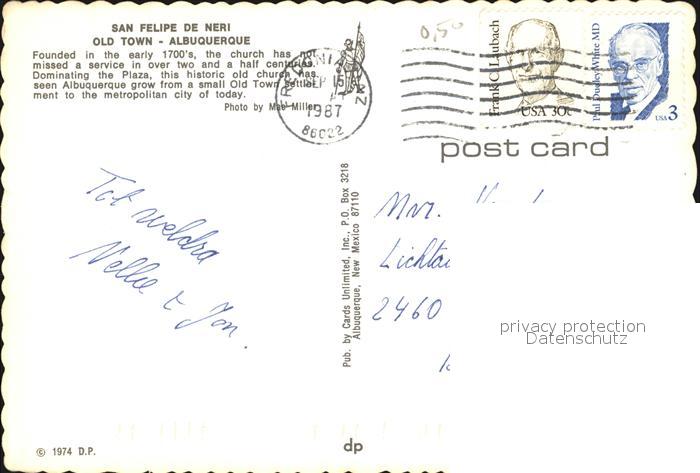 SAN FELIPE DE NERI
OLD TOWN - ALBUQUERQUE
Founded in the early 1700's, the church has not
missed a service in over two and a half centuries.
Dominating the Plaza, this historic old church has
seen Albuquerque grow from a small Old Town settle-
ment to the metropolitan city of today.
Photo by Mae Miller
SEP 15
1987
86022
0,50
Frank C. Laubach
USA 30c
Paul Dudley White MD
USA 3
post card
Tot weldra
Nellie & Jan.
Pub. by Cards Unlimited, Inc., P.O. Box 3218
Albuquerque, New Mexico 87110
Mvr.
Lichta
2460
privacy protection
Datenschutz
© 1974 D.P.
dp